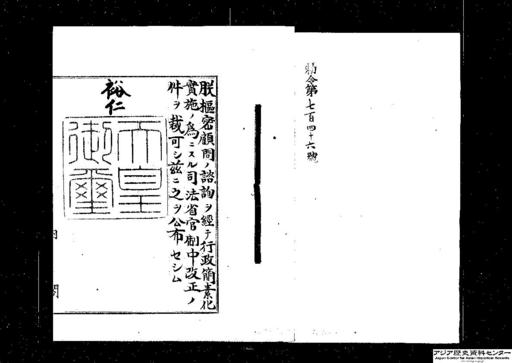 勅令第七百四十六號
朕樞密顧問ノ諮詢ヲ經テ行政簡素化
實施ノ爲ニスル司法省官制中改正ノ
件ヲ裁可シ茲ニ之ヲ公布セシム
裕仁
天皇
御璽
内
閣
アジア歴史資料センター
Japan Center for Asian Historical Records